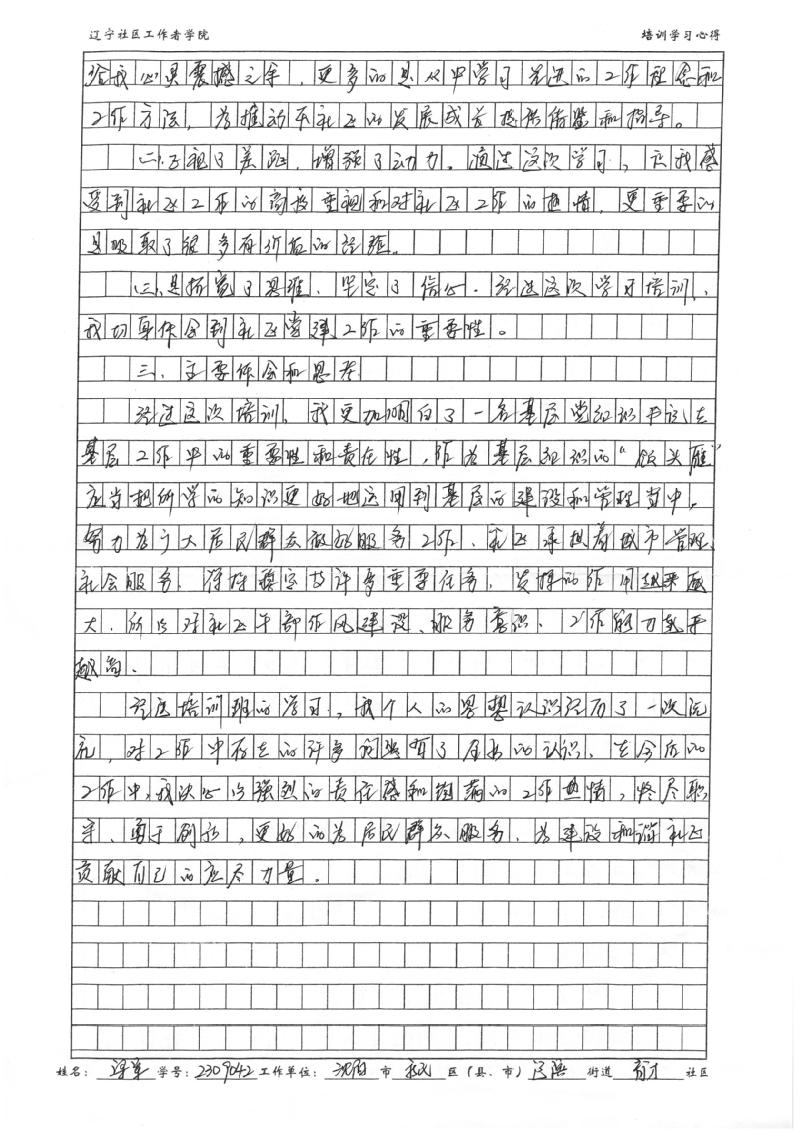 辽宁社区工作者学院 培训学习心得
给我心灵震撼之余,更多的是从中学习先进的工作理念和
工作方法,为推动本社区的发展成长提供借鉴和指导。
(二)、正视了差距,增强了动力。通过这次学习,让我感
受到社区工作的高度重视和对社区工作的热情,更重要的
是吸取了很多有价值的经验。
(三)、是拓宽了思维、坚定了信心.经过这次学习培训、
我切身体会到社区党建工作的重要性。
三、主要体会和思考
经过这次培训,我更加明白了一名基层党组织书记在
基层工作中的重要性和责任性,作为基层组织的“领头雁”
应当把所学的知识更好地运用到基层的建设和管理当中。
努力为广大居民群众做好服务工作、社区承担着城市管理、
社会服务、保持稳定及许多重要任务、发挥的作用越来越
大.所以对社区干部作风建设、服务意识、工作能力要求
越高.
经过培训班的学习,我个人的思想认识经历了一次洗
礼,对工作中存在的许多问题有了全新的认识、在今后的
工作中,我决心以强烈的责任感和饱满的工作热情,恪尽职
守、勇于创新,更好的为居民群众服务、为建设和谐社区
贡献自己的应尽力量。
姓名: 学号:2309042 工作单位:沈阳 市 区(县、市) 街道 育才 社区